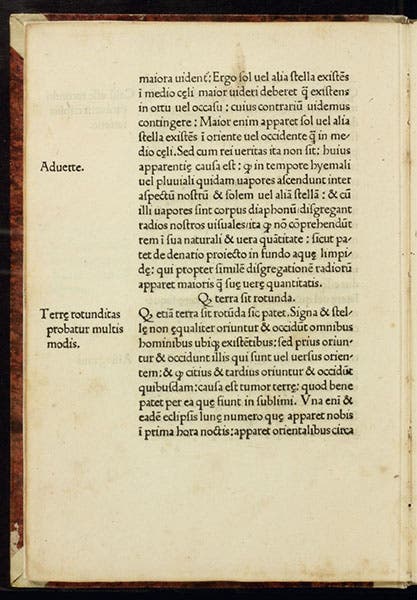 maiora uident᷑: Ergo sol uel alia stella existẽs
ĩ medio cęli maior uideri deberet q̃ existens
in ortu uel occasu: cuius contrariũ uidemus
contingere: Maior enim apparet sol uel alia
stella existẽs ĩ oriente uel occidente q̃ in me
dio cęli. Sed cum rei ueritas ita non sit: huius
Aduerte.
apparentię causa est: ꝙ in tempore hyemali
uel pluuiali quidam uapores ascendunt inter
aspectũ nostrũ & solem uel aliã stellã: & cũ
illi uapores sint corpus diaphonũ disgregant
radios nostros uisuales ita ꝙ nõ cõprehẽdũt
rem ĩ sua naturali & uera quãtitate: sicut pa-
tet de denario proiecto in fundo aquę limpi-
dę: qui propter similẽ disgregationẽ radiorũ
apparet maioris q̃ suę uerę quantitatis.
Qꝫ terra sit rotunda.
Terrę rotunditas
probatur multis
modis.
Qꝫ etiã terra sit rotũda sic patet. Signa & stel-
lę non equaliter oriuntur & occidũt omnibus
hominibus ubiqꝫ existẽtibus: sed prius oriun-
tur & occidunt illis qui sunt uel uersus orien-
tem: & ꝙ citius & tardius oriuntur & occidũt
quibusdam: causa est tumor terrę: quod bene
patet per ea quę fiunt in sublimi. Vna eni᷑ &
eadẽ eclipsis lunę numero quę apparet nobis
ĩ prima hora noctis: apparet orientalibus circa